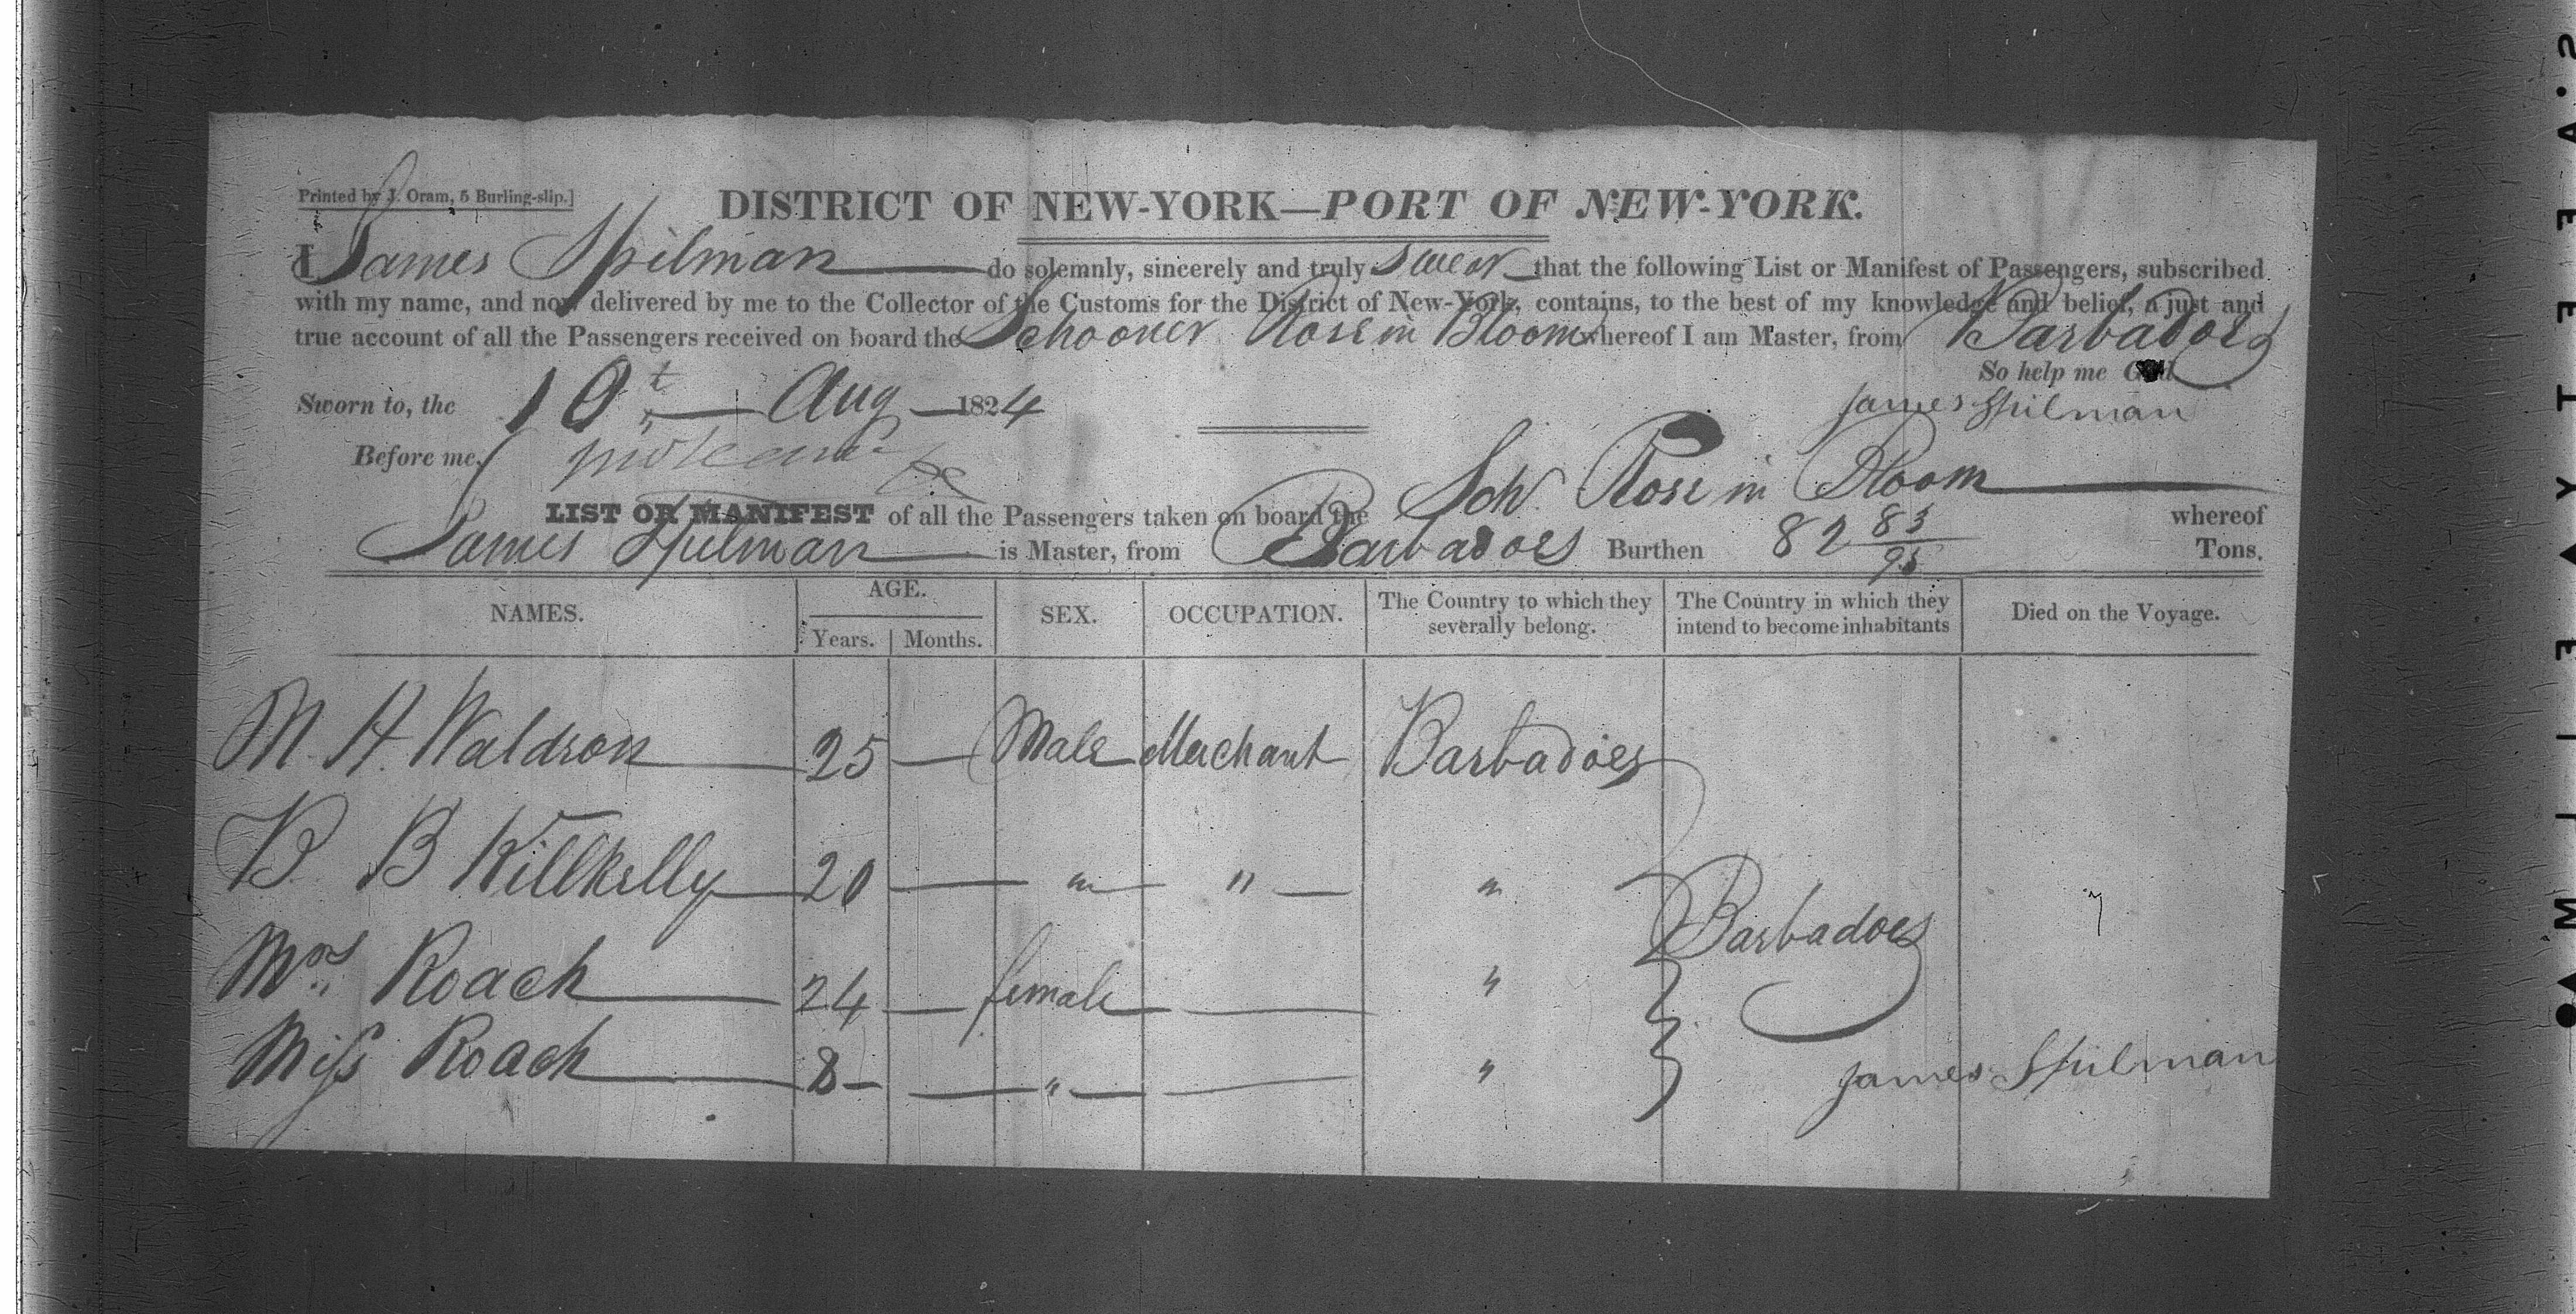 Printed by J. Oram, 5 Burling-slip.]
DISTRICT OF NEW-YORK—PORT OF NEW-YORK.
I James Spilman do solemnly, sincerely and truly swear that the following List or Manifest of Passengers, subscribed
with my name, and now delivered by me to the Collector of the Customs for the District of New-York, contains, to the best of my knowledge and belief, a just and
true account of all the Passengers received on board the Schooner Rose in Bloom whereof I am Master, from Barbadoes
So help me God.
Sworn to, the 10t Aug 1824
James Spilman
Before me,
LIST OR MANIFEST of all the Passengers taken on board the Schr Rose in Bloom whereof
James Spilman is Master, from Barbadoes Burthen 82 83/95 Tons.
NAMES. AGE. Years. Months. SEX. OCCUPATION. The Country to which they severally belong. The Country in which they intend to become inhabitants Died on the Voyage.
M. H. Waldron 25 — Male Merchant Barbadoes
B B Killkelly 20 — " " — "
Barbadoes
Mrs Roach 24 — female — "
Miss Roach 8 — " — "
James Spilman